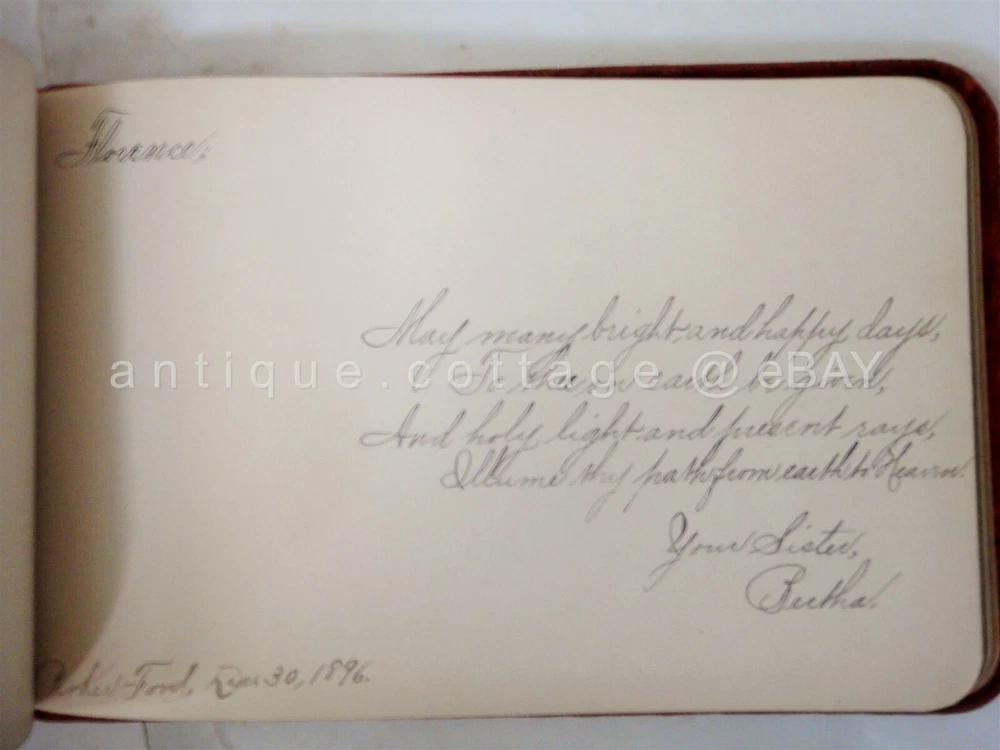 Florence;
May many bright and happy days,
To thee on earth be given,
And holy light and present rays,
Illume thy path from earth to Heaven.
Your Sister,
Bertha.
Parker Ford, Dec 30, 1896.
antique.cottage @ eBAY